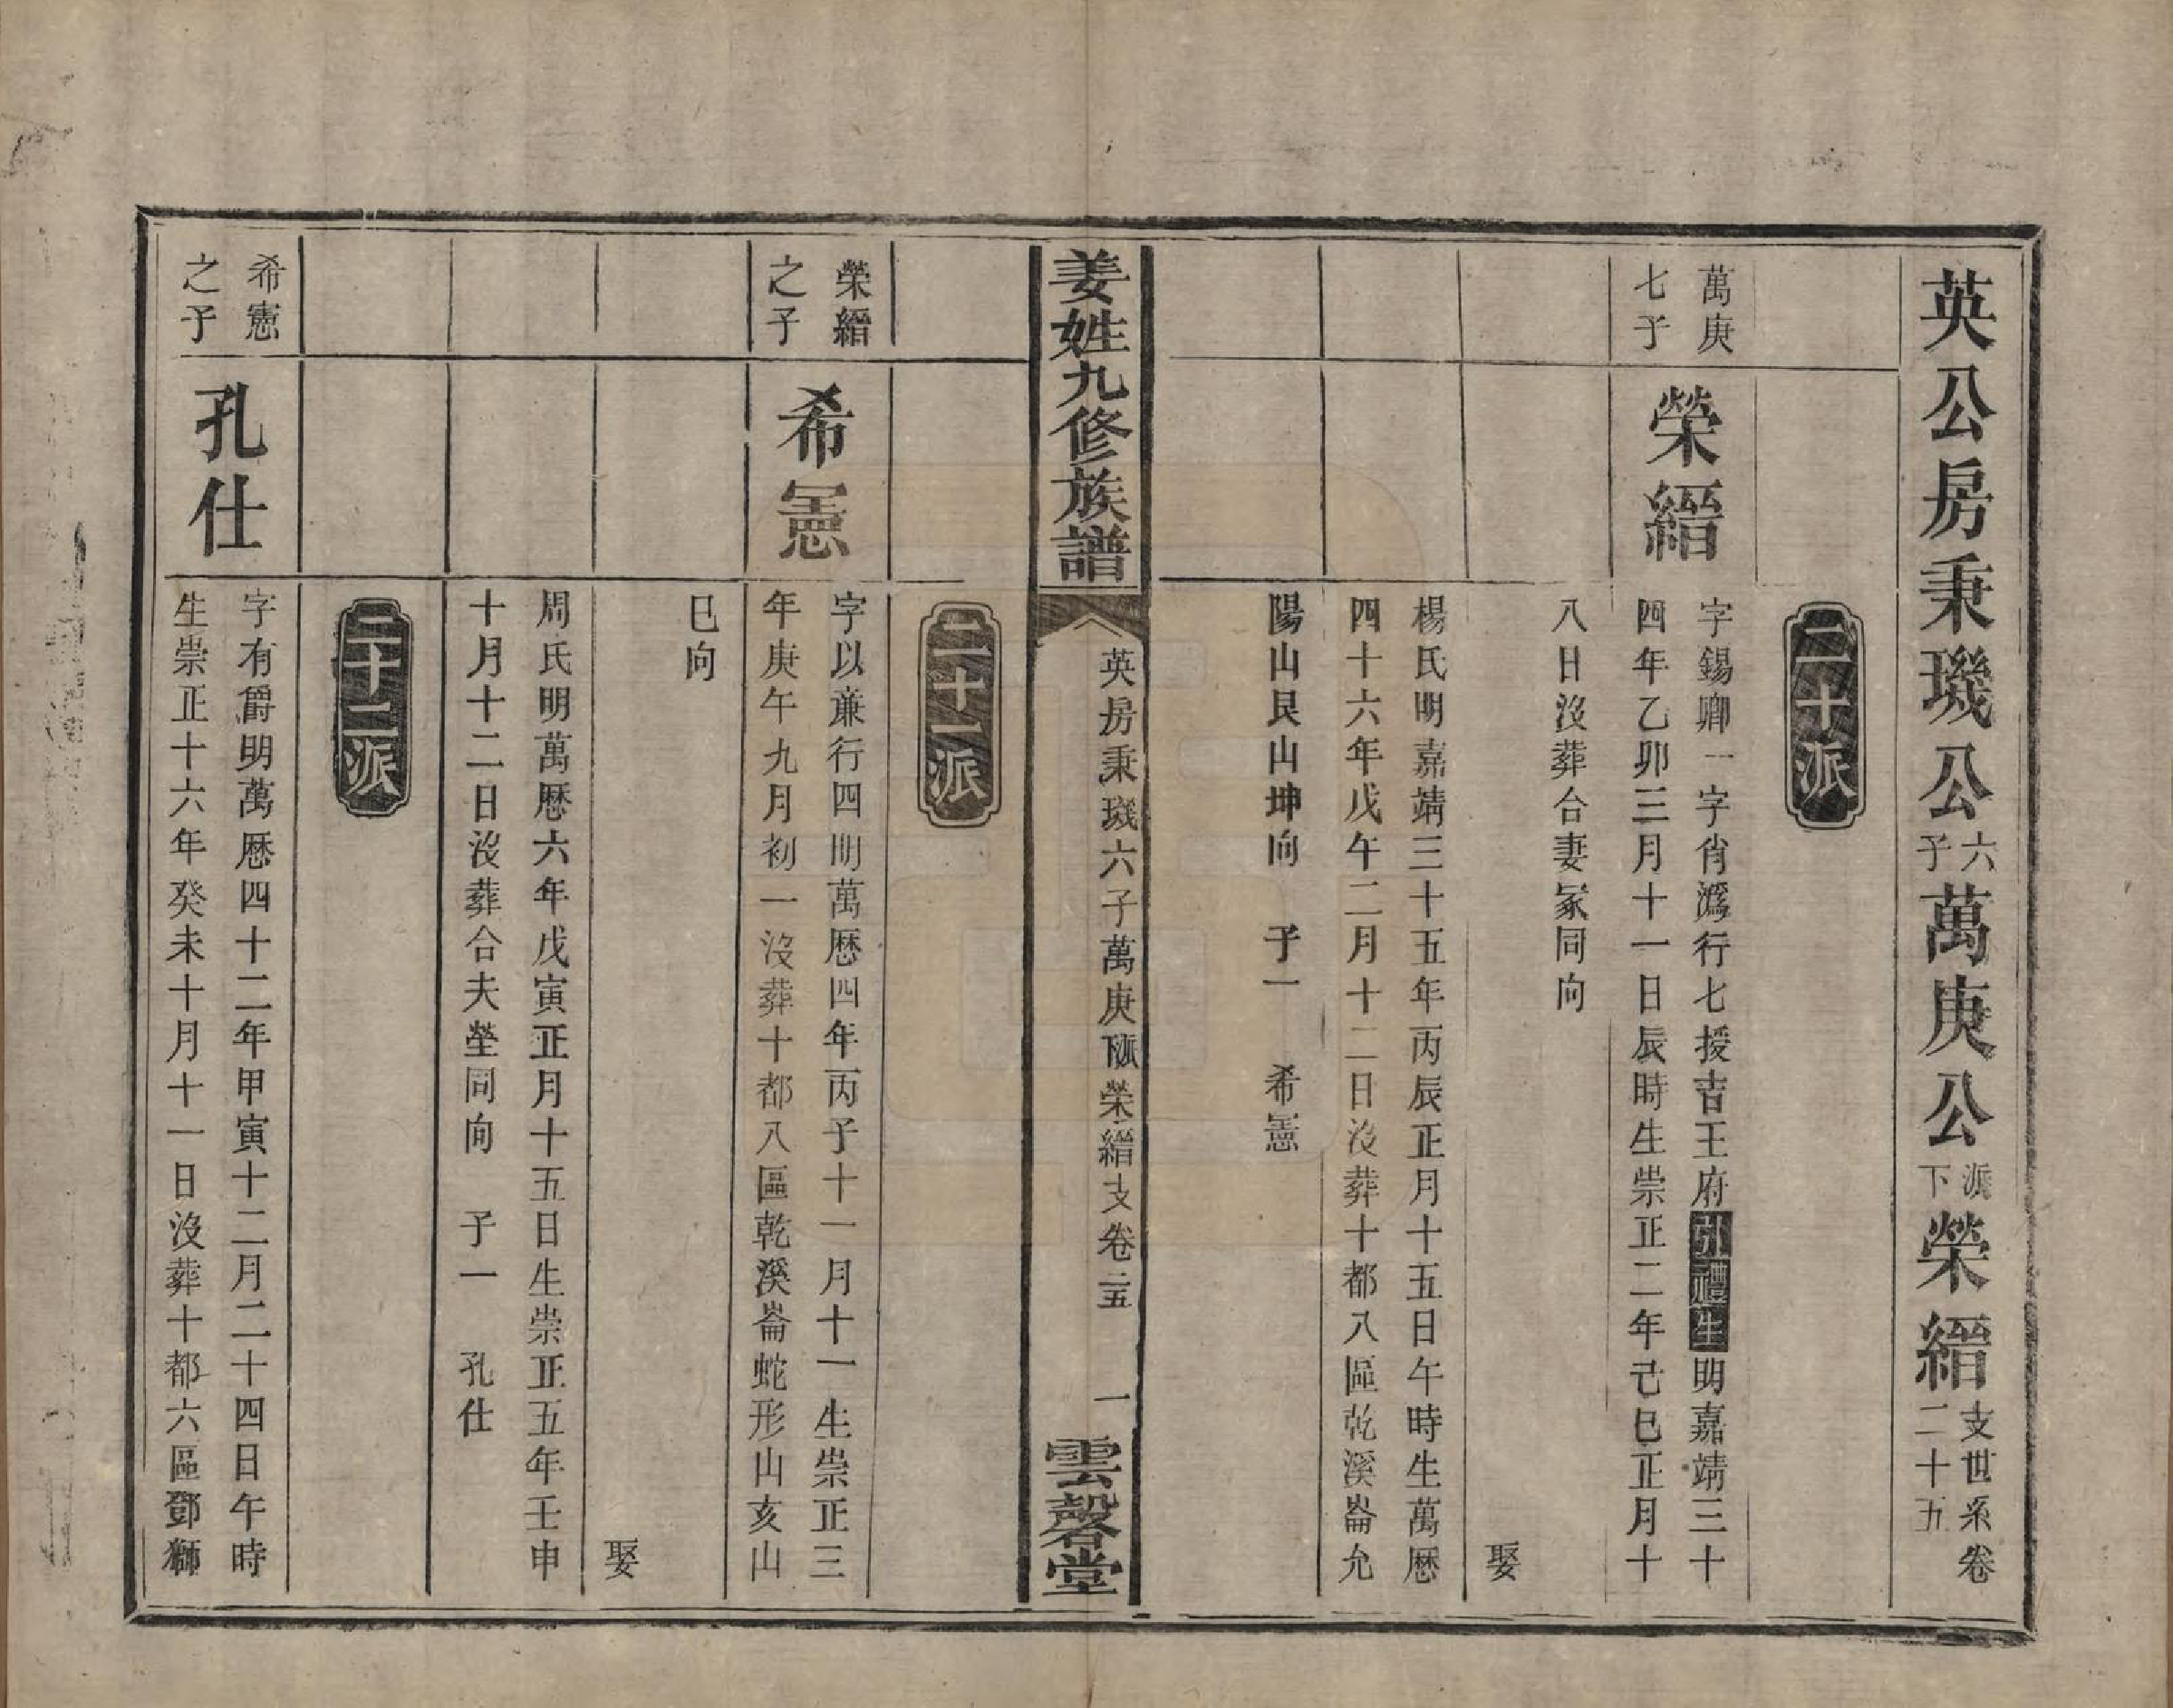 英公房秉璣公六子萬庚公派下榮縉支世系卷二十五
二十派
萬庚七子
榮縉
字錫卿一字肖潙行七授吉王府引禮生明嘉靖三十
四年乙卯三月十一日辰時生崇正二年己巳正月十
八日沒葬合妻冢同向
娶
楊氏明嘉靖三十五年丙辰正月十五日午時生萬曆
四十六年戊午二月十二日沒葬十都八區乾溪崙允
陽山艮山坤向 子一 希憲
姜姓九修族譜
英房秉璣六子萬庚派下榮縉支卷二五 一
雲磬堂
二十一派
榮縉之子
希憲
字以亷行四明萬曆四年丙子十一月十一生崇正三
年庚午九月初一沒葬十都八區乾溪崙蛇形山亥山
巳向
娶
周氏明萬曆六年戊寅正月十五日生崇正五年壬申
十月十二日沒葬合夫塋同向 子一 孔仕
二十二派
希憲之子
孔仕
字有爵明萬曆四十二年甲寅十二月二十四日午時
生崇正十六年癸未十月十一日沒葬十都六區鄧獅